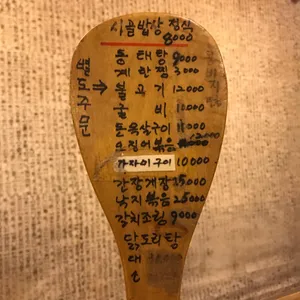 시골밥상 정식
8000
별도주문 ⇒
동태탕 9000
계란찜 3000
불고기 12000
굴비 10000
돈목살구이
오징어볶음
가자미구이 10000
간장게장 25000
낙지볶음 25000
갈치조림 9000
닭도리탕
대
소